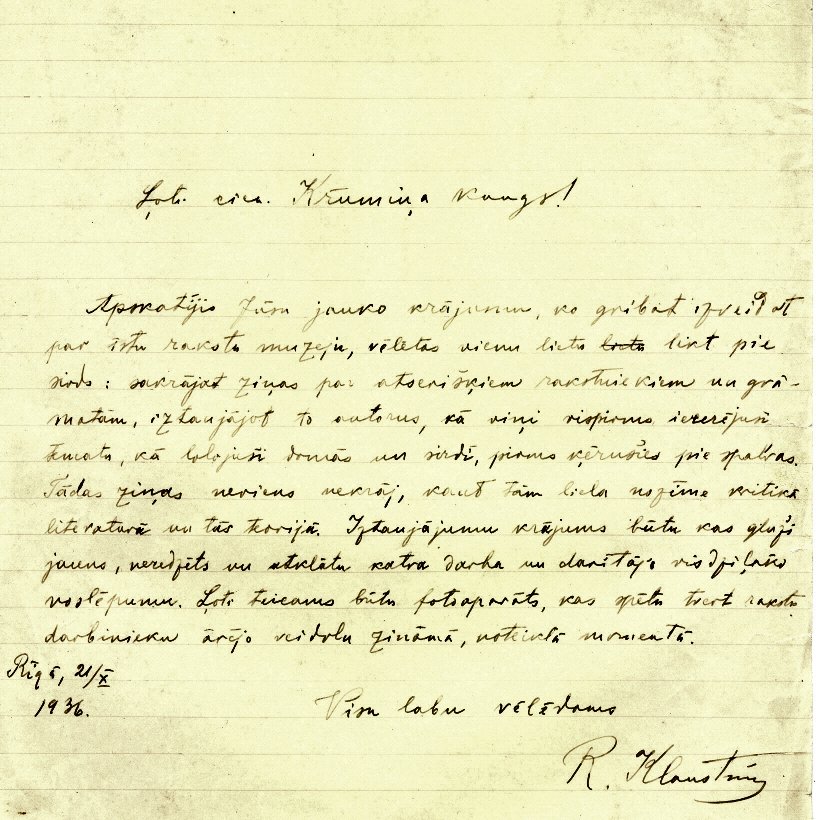 Ļoti cien. Krūmiņa kungs!
Apskatījis Jūsu jauko krājumu, ko gribat izveidot
par īstu rakstu muzeju, vēlētos vienu lietu lietu likt pie
sirds: sakrājat ziņas par atsevišķiem rakstniekiem un grā-
matām, iztaujājot to autorus, kā viņi vispirms iecerējuši
tematu, kā lolojuši domās un sirdī, pirms ķērušies pie spalvas.
Tādas ziņas neviens nekrāj, kaut tām liela nozīme kritikā
literaturā un tās teorijā. Iztaujājumu krājums būtu kas gluži
jauns, neredzēts un atklātu katra darba un darītāja visdziļāko
noslēpumu. Ļoti teicams būtu fotoaparāts, kas spētu tvert rakstu
darbinieku ārējo veidolu zināmā, noteiktā momentā.
Rīgā, 21/X
1936.
Visu labu vēlēdams
R. Klaustiņ